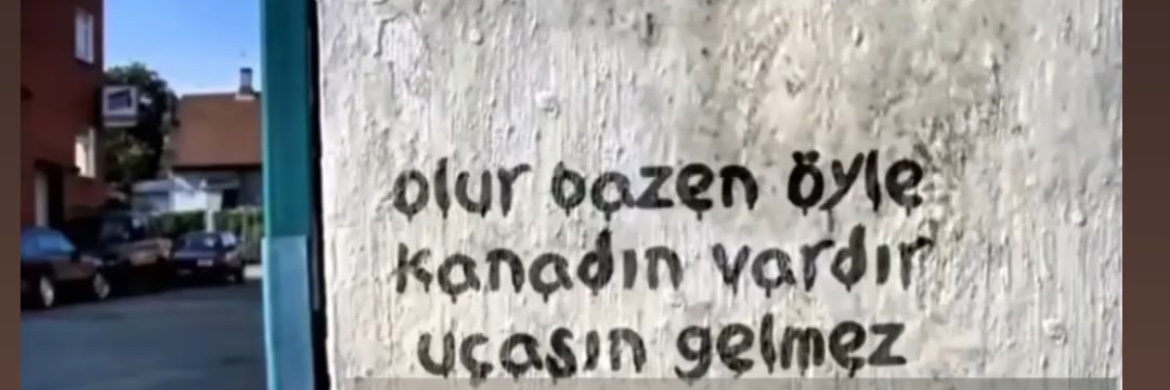 olur bazen öyle
kanadın vardır
uçasın gelmez